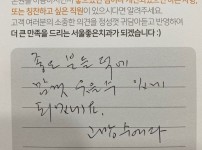 또는 칭찬하고 싶은 직원이 있으시다면 알려주세요.
고객 여러분의 소중한 의견을 정성껏 귀담아듣고 반영하여
더 큰 만족을 드리는 서울좋은치과가 되겠습니다 :)
좋은 분들 덕에
맘껏 웃을 수 있게
되었네요.
고맙습니다